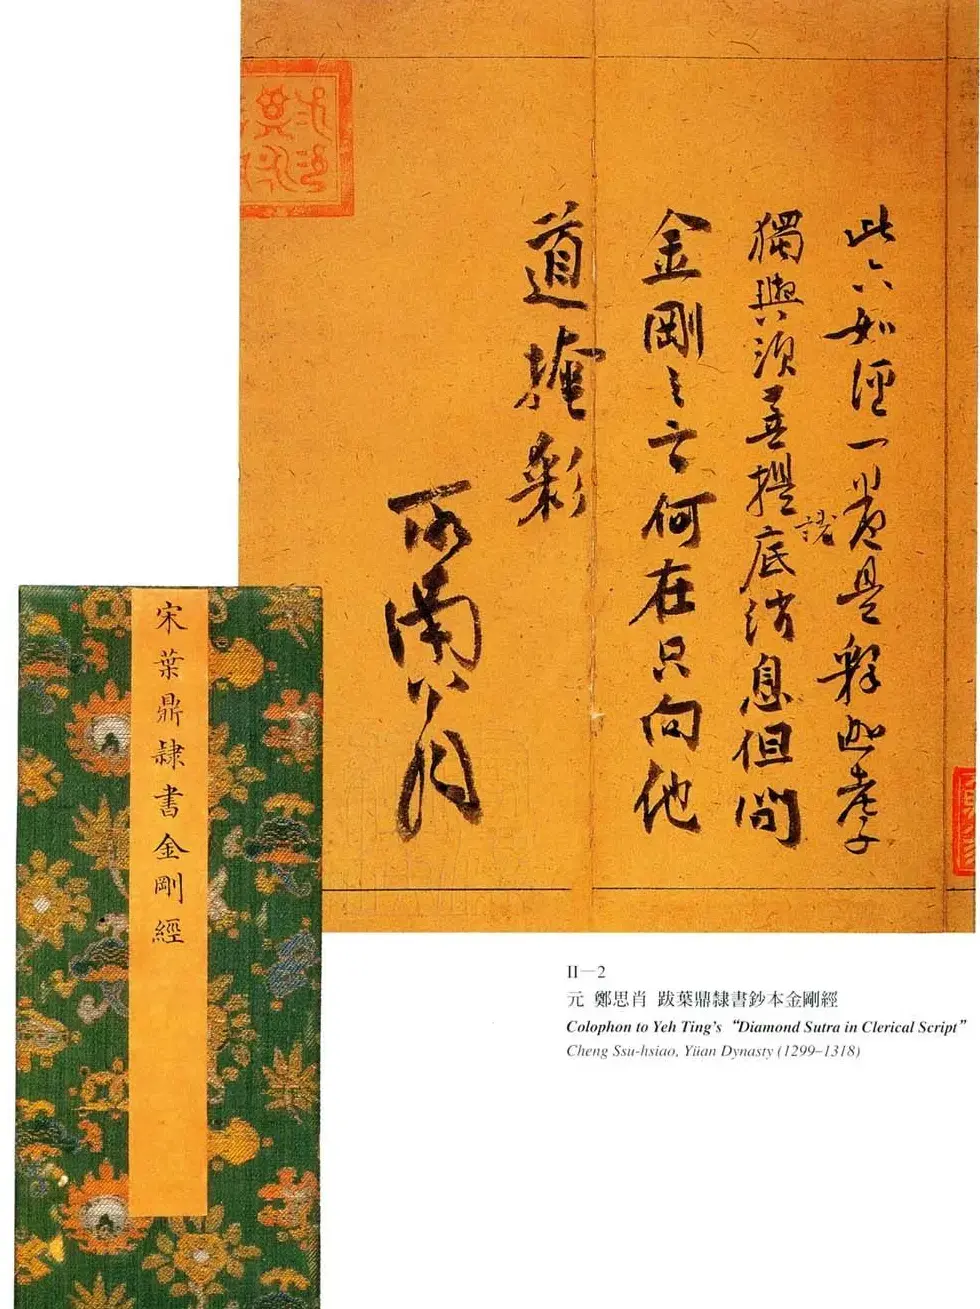 此六如經一是釋迦老子
獨與須菩提底消息但問
金剛之言何在只向他
道掩彩
所南翁
宋葉鼎隸書金剛經
II—2
元 鄭思肖 跋葉鼎隸書鈔本金剛經
Colophon to Yeh Ting's “Diamond Sutra in Clerical Script”
Cheng Ssu-hsiao, Yüan Dynasty (1299–1318)